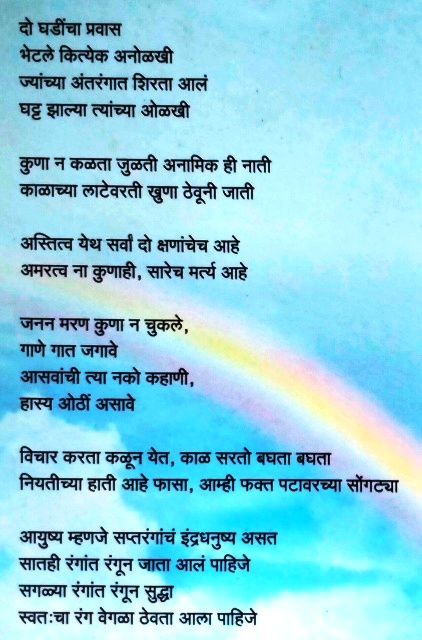 दो घडींचा प्रवास
भेटले कित्येक अनोळखी
ज्यांच्या अंतरंगात शिरता आलं
घट्ट झाल्या त्यांच्या ओळखी
कुणा न कळता जुळती अनामिक ही नाती
काळाच्या लाटेवरती खुणा ठेवूनी जाती
अस्तित्व येथ सर्वां दो क्षणांचेच आहे
अमरत्व ना कुणाही, सारेच मर्त्य आहे
जनन मरण कुणा न चुकले,
गाणे गात जगावे
आसवांची त्या नको कहाणी,
हास्य ओठीं असावे
विचार करता कळून येत, काळ सरतो बघता बघता
नियतीच्या हाती आहे फासा, आम्ही फक्त पटावरच्या सोंगट्या
आयुष्य म्हणजे सप्तरंगांचं इंद्रधनुष्य असत
सातही रंगांत रंगून जाता आलं पाहिजे
सगळ्या रंगांत रंगून सुद्धा
स्वतःचा रंग वेगळा ठेवता आला पाहिजे